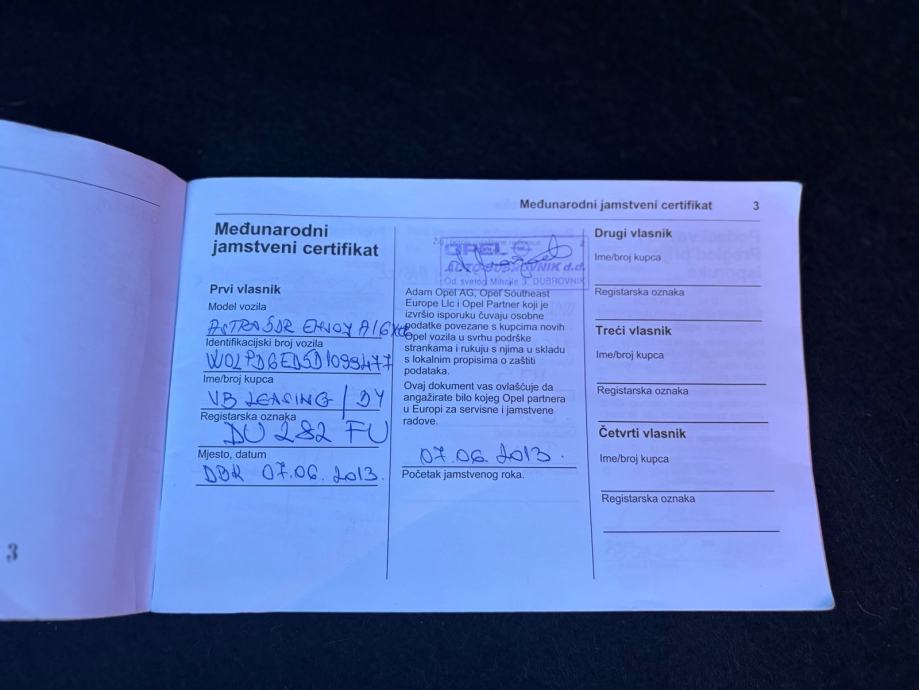 Međunarodni jamstveni certifikat 3
Međunarodni
jamstveni certifikat
Prvi vlasnik
Model vozila
ASTRA 5DR ENJOY A16
Identifikacijski broj vozila
W0LPD6ED5D1099477
Ime/broj kupca
VB LEASING / DY
Registarska oznaka
DU 282 FU
Mjesto, datum
DBK 07.06.2013.
OPEL
AUTO DUBROVNIK d.d.
Od svetog Mihajla 3, DUBROVNIK
Adam Opel AG, Opel Southeast
Europe Llc i Opel Partner koji je
izvršio isporuku čuvaju osobne
podatke povezane s kupcima novih
Opel vozila u svrhu podrške
strankama i rukuju s njima u skladu
s lokalnim propisima o zaštiti
podataka.
Ovaj dokument vas ovlašćuje da
angažirate bilo kojeg Opel partnera
u Europi za servisne i jamstvene
radove.
07.06.2013.
Početak jamstvenog roka.
Drugi vlasnik
Ime/broj kupca
Registarska oznaka
Treći vlasnik
Ime/broj kupca
Registarska oznaka
Četvrti vlasnik
Ime/broj kupca
Registarska oznaka
3